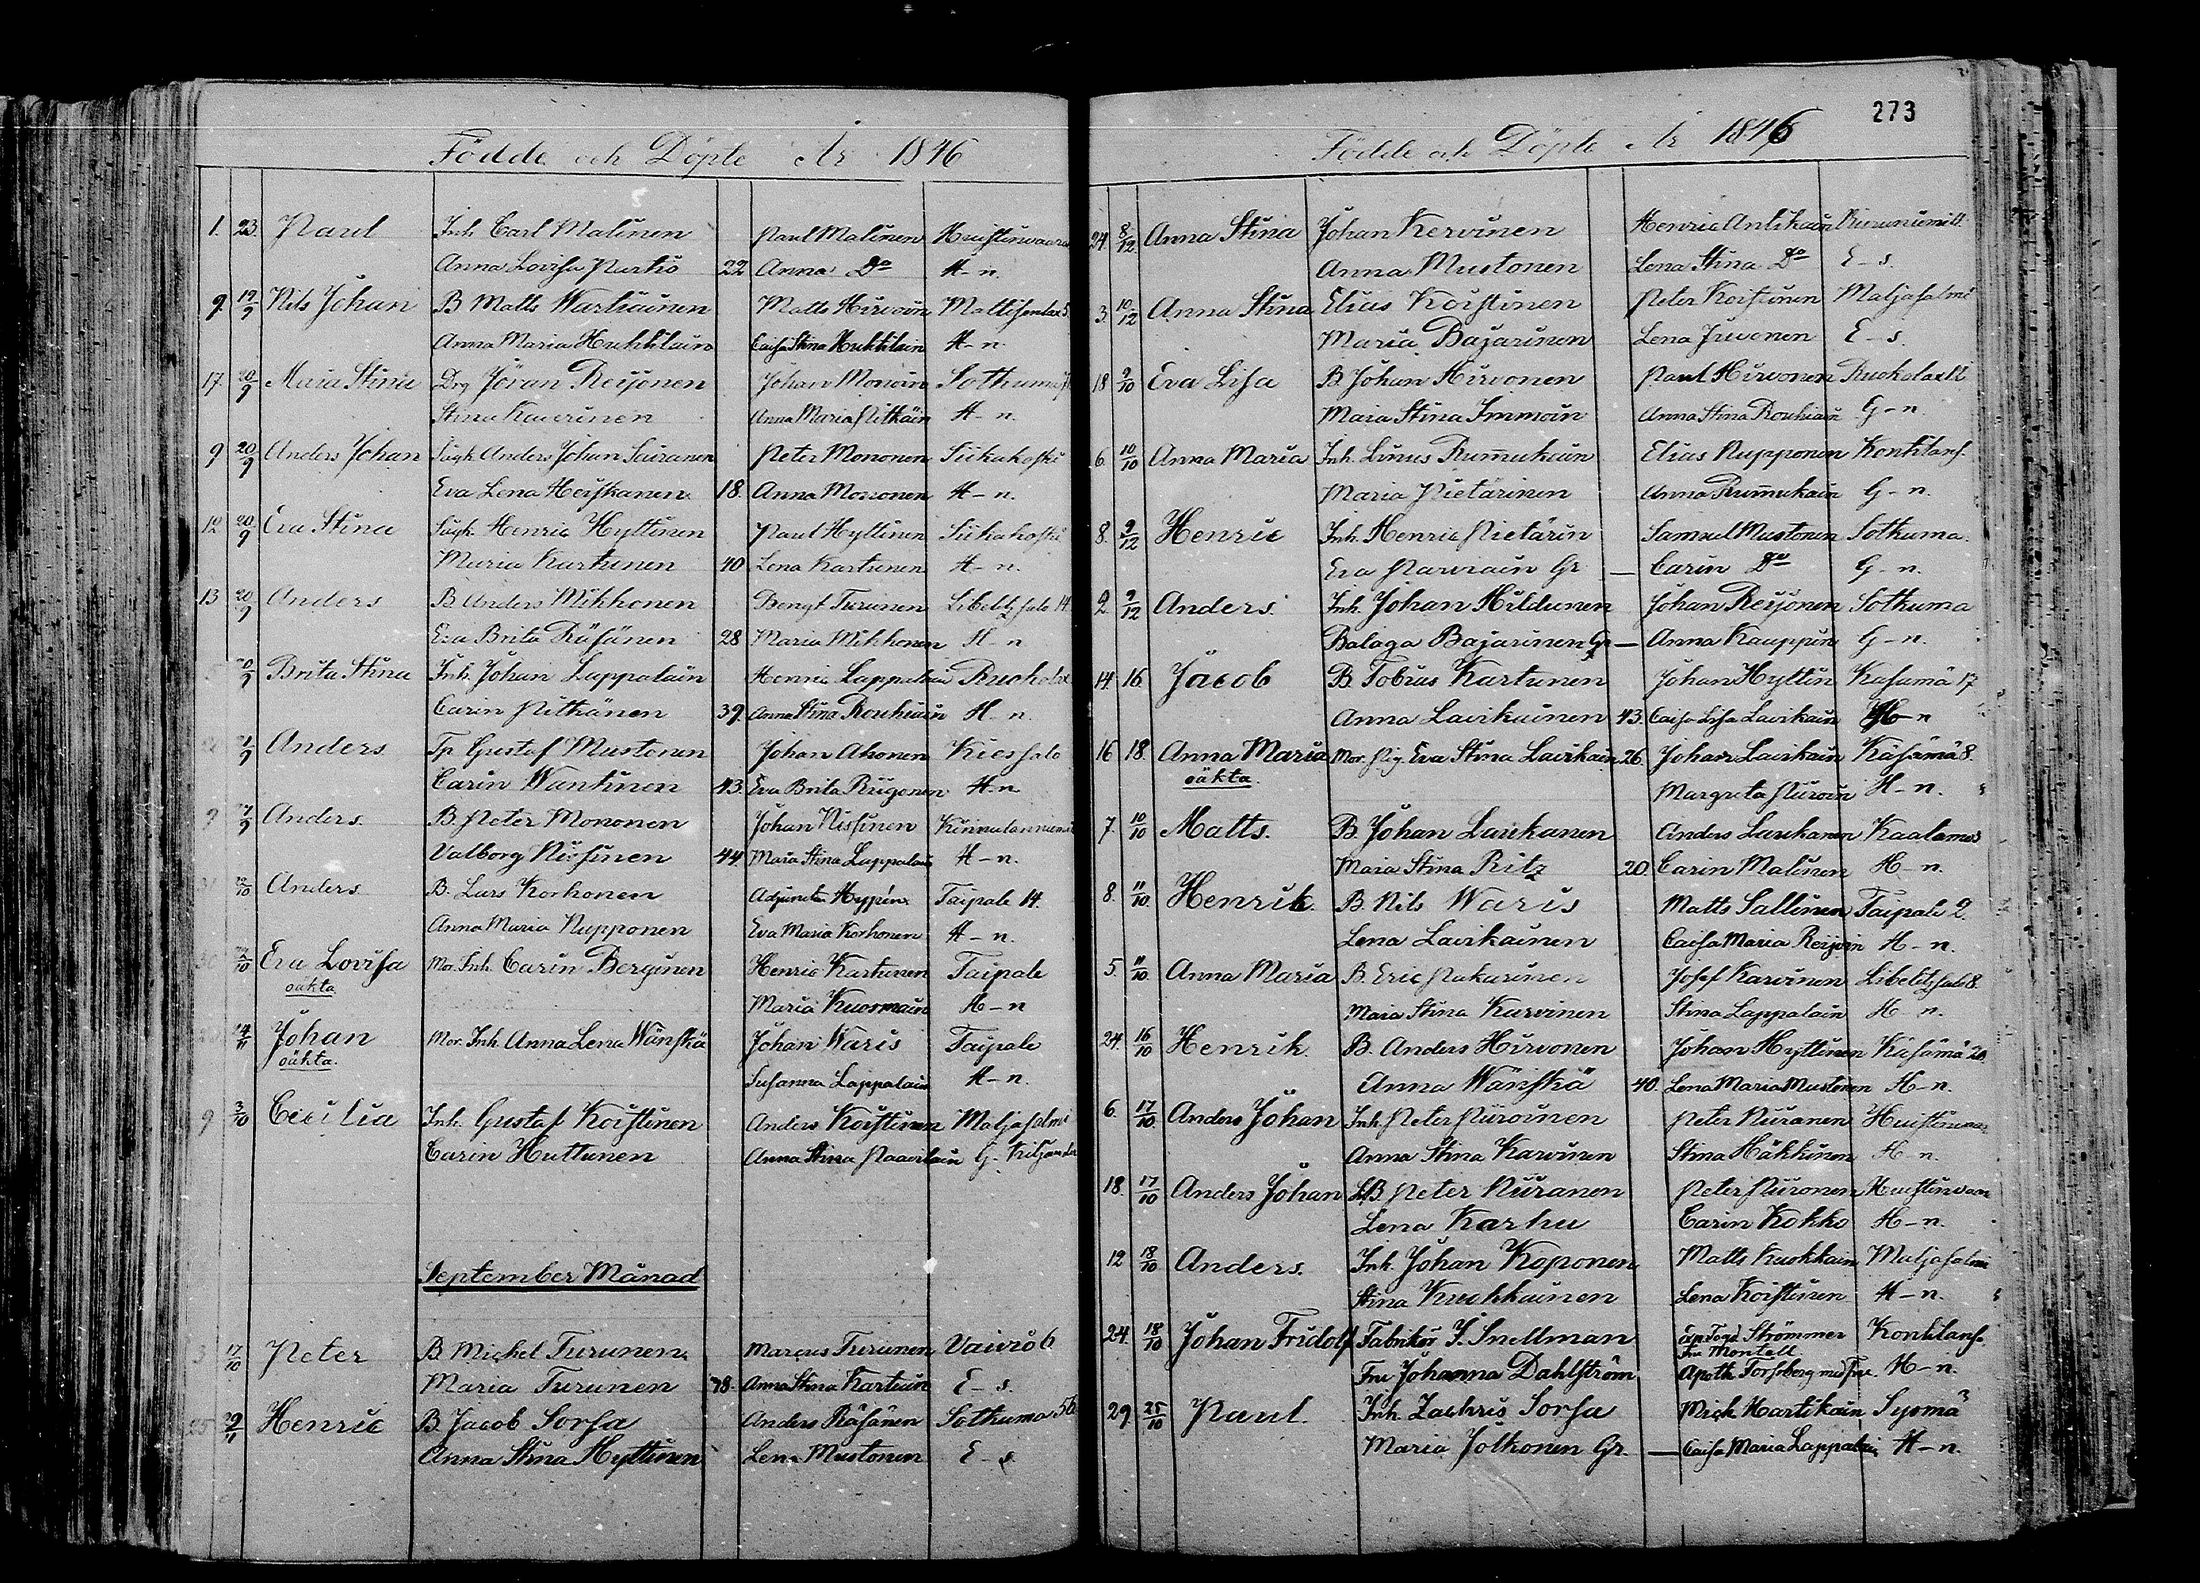 273
Födde och Döpte År 1846
1. 23. Paul Inh. Carl Malinen Paul Malinen
Anna Lovisa Purtio 22 Anna Do H-n.
9. 19/9 Nils Johan B Matts Wartiainen Matts Hirvoin
Anna Maria Caisa Stina H-n.
17. 20/9 Maria Stina Drg Jöran Reijonen Johan Monoin Sotkuma
Stina Kaurinen Anna Maria Pitkäin H-n.
9 20/9 Anders Johan Anders Johan Sairanen Peter Mononen Siikakoski
Eva Lena Heiskanen 18. Anna Mononen H-n.
20/9 Eva Stina Henric Hyttinen Paul Hyttinen Siikakoski
Maria Kartunen 40 Lena Kartunen H-n.
13 20/9 Anders B Anders Mikkonen Bengt Turunen Libelitz salo 14
Eva Brita Räsänen 28 Maria Mikkonen H-n
20/9 Brita Stina Inh. Johan Lappalain Henric Lappalain
Carin Pitkänen 39. Anna Stina Roukiain H-n.
Anders Tp Gustaf Mustonen Johan Ahonen
Carin Wantinen 43. Eva Brita Riigonen H-n
9 Anders. B. Peter Mononen Johan Nissinen
Valborg Nissinen 44. Maria Stina Lappalain H-n.
Anders B. Lars Korhonen Adjuncten Taipale 14.
Anna Maria Nupponen Eva Maria Korhonen H-n.
Eva Lovisa Mor. Inh. Carin Berginen Henric Kartunen Taipale
oäkta Maria Kuosmain H-n
Johan Mor. Inh. Anna Lena Wänskä Johan Waris Taipale
oäkta. Susanna Lappalain H-n.
9 3/10 Cecilia Inh. Gustaf Koistinen Anders Koistinen Maljasalmi
Carin Huttunen Anna Stina Paavilain G.
September Månad
3 17/10 Peter B Michel Turunen Marcus Turunen Vaivio 6
Maria Turunen 78. Anna Stina Kartuin E-s.
25 29/11 Henric B Jacob Sorsa Anders Räsänen Sotkuma 56
Anna Stina Hyttinen Lena Mustonen E-s
Födde och Döpte År 1846
24. 8/12. Anna Stina Johan Kervinen Henric Antikain
Anna Mustonen Lena Stina Do E-s.
3. 10/12 Anna Stina Elias Koistinen Peter Koistinen Maljasalmi
Maria Bajarinen Lena Juvonen E-s.
18 9/10 Eva Lisa B. Johan Hirvonen Paul Hirvonen
Maria Stina Immoin Anna Stina Roukiain G-n.
6. 10/10 Anna Maria Inh. Linus Rummukain Elias Nupponen
Maria Pietärinen Anna Rummukain G-n.
8. 9/12 Henric Inh. Henric Pietärin Samuel Mustonen Sotkuma.
Eva Parviain Gr — Carin Do G-n.
2 9/12 Anders. Inh. Johan Hildunen Johan Reijonen Sotkuma
Balaga Bajarinen Gr — Anna Kauppin G-n.
14. 16. Jacob B. Tobias Kartunen Johan Hyttin Käsämä 17
Anna Lavikainen 43. Caisa Lisa Lavikain H-n
16 18. Anna Maria Mor. Pig. Eva Stina Lavikain 26. Johan Lavikain Käsämä 8.
oäkta. Margreta Piiroin H-n.
7. 10/10 Matts. B. Johan Laukanen Anders Laukanen Kaalamo
Maria Stina Ritz 20. Carin Malinen H-n.
8. 11/10. Henrik. B. Nils Waris Matts Sallinen Taipale 2.
Lena Lavikainen Caisa Maria Reijoin H-n.
5. 11/10 Anna Maria B. Eric Pakarinen Josef Karvinen Libelitz salo 8.
Maria Stina Karvinen Stina Lappalain H-n.
24. 16/10 Henrik. B. Anders Hirvonen Johan Hyttinen Käsämä 20.
Anna Wänskä 40. Lena Maria Mustonen H-n.
6. 17/10. Anders Johan Inh. Peter Piiroinen Peter Piiranen
Anna Stina Karvinen Stina Häkkinen H-n.
18. 17/10 Anders Johan Peter Piiranen Peter Piironen
Lena Karhu Carin Kokko H-n.
12 18/10 Anders. Inh. Johan Koponen Matts Kuokkain Maljasalmi
Stina Kuokkainen Lena Koistinen H-n.
24. 18/10 Johan Fridolf Fabrikör J. Snellman Strömmer
Fru Montell
Fru Johanna Dahlström Apoth. Forsberg med Fru H-n.
29. 25/10 Paul. Inh. Zachris Sorsa Mich Hartikain Sysmä 3
Maria Jolkonen Gr. — Caisa Maria Lappalain H-n.